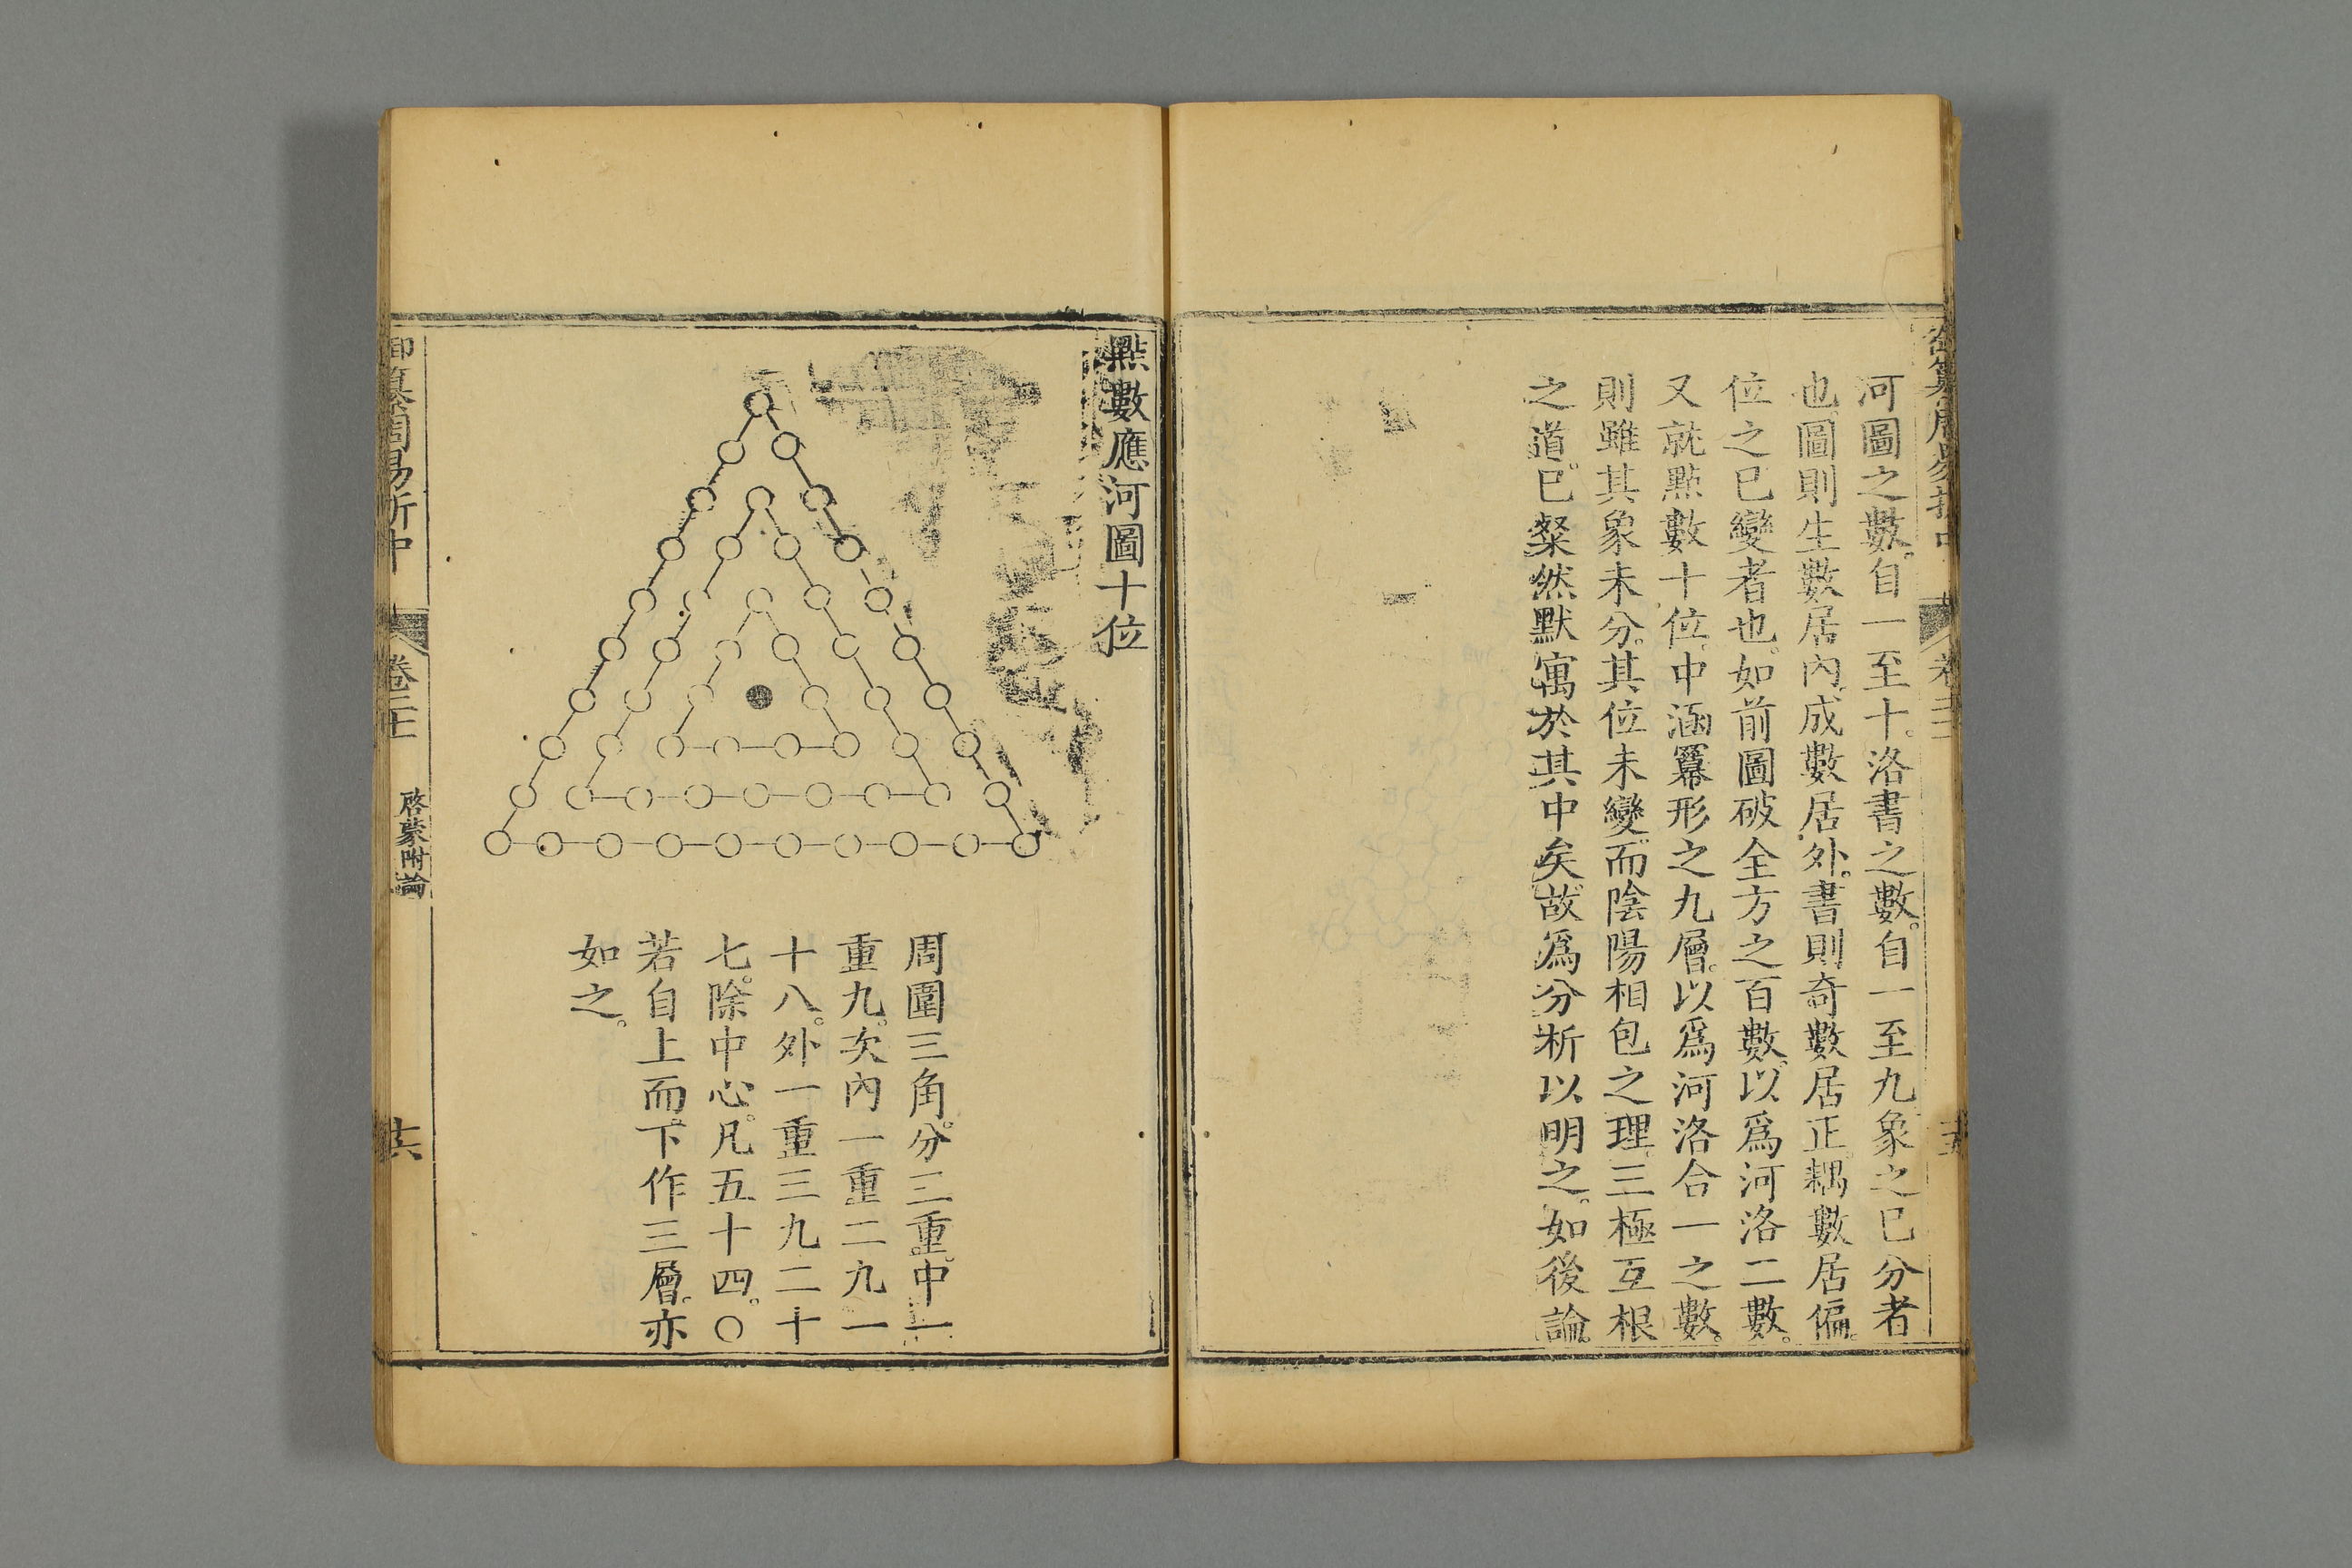 河圖之數。自一至十。洛書之數。自一至九象之已分者
也圖則生數居內。成數居外。書則奇數居正。耦數居偏。
位之已變者也。如前圖破全方之百數。以爲河洛二數。
又就點數十位。中涵冪形之九層。以爲河洛合一之數。
則雖其象未分。其位未變。而陰陽相包之理。三極互根
之道。已粲然默寓於其中矣。故爲分析以明之。如後論。
點數應河圖十位
周圍三角。分三重。中一
重九。次內一重二九一
十八。外一重三九二十
七。除中心。凡五十四。〇
若自上而下。作三層。亦
如之。
御纂周易折中
啓蒙附論